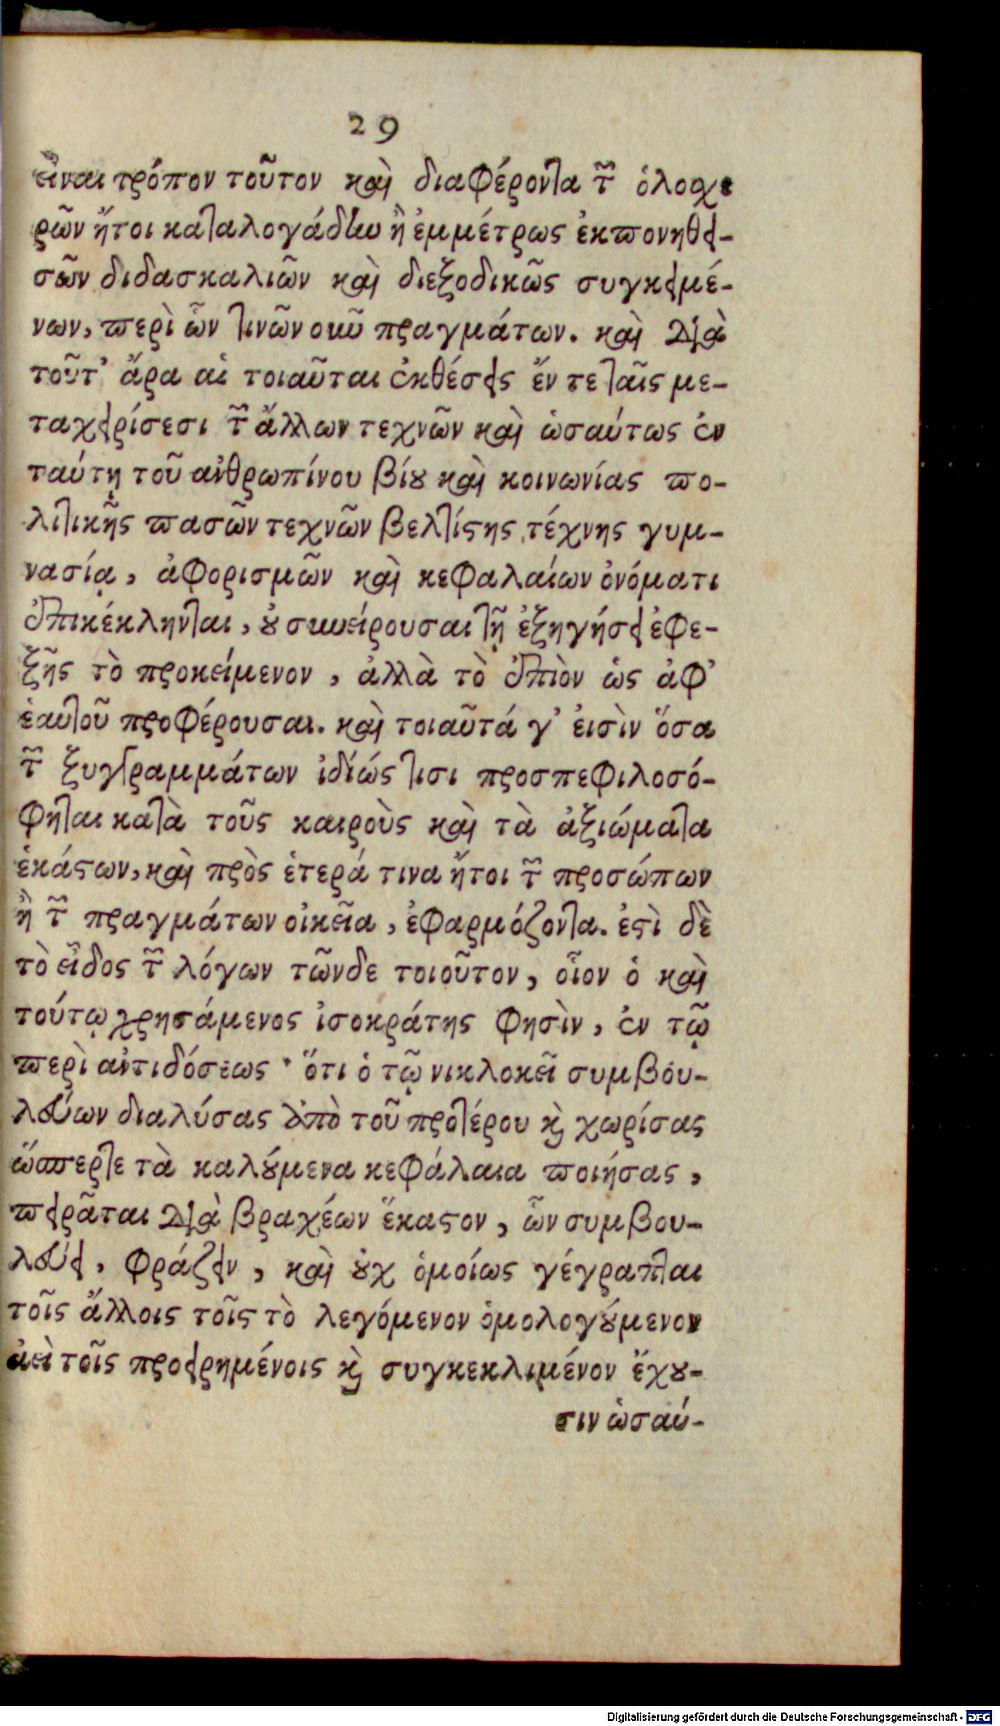 29
εἶναι τρόπον τοῦτον καὶ διαφέροντα τῶν ὁλοχε
ρῶν ἤτοι καταλογάδην ἢ ἐμμέτρως ἐκπονηθει-
σῶν διδασκαλιῶν καὶ διεξοδικῶς συγκειμέ-
νων, περὶ ὧν τινῶν οὖν πραγμάτων. καὶ διὰ
τοῦτ᾽ ἄρα αἱ τοιαῦται ἐκθέσεις ἔν τε ταῖς με-
ταχειρίσεσι τῶν ἄλλων τεχνῶν καὶ ὡσαύτως ἐν
ταύτῃ τοῦ ἀνθρωπίνου βίου καὶ κοινωνίας πο-
λιτικῆς πασῶν τεχνῶν βελτίστης τέχνης γυμ-
νασίᾳ, ἀφορισμῶν καὶ κεφαλαίων ὀνόματι
ἐπικέκληνται, οὐ συνείρουσαι τῇ ἐξηγήσει ἐφε-
ξῆς τὸ προκείμενον, ἀλλὰ τὸ ἐπιὸν ὡς ἀφ᾽
ἑαυτοῦ προφέρουσαι. καὶ τοιαῦτά γ᾽ εἰσὶν ὅσα
τῶν ξυγγραμμάτων ἰδίως τισι προσπεφιλοσό-
φηται κατὰ τοῦς καιροὺς καὶ τὰ ἀξιώματα
ἑκάστων, καὶ πρὸς ἑτερά τινα ἤτοι τῶν προσώπων
ἢ τῶν πραγμάτων οἰκεῖα, ἐφαρμόζοντα. ἐστὶ δὲ
τὸ εἶδος τῶν λόγων τῶνδε τοιοῦτον, οἷον ὁ καὶ
τούτῳ χρησάμενος ἰσοκράτης φησὶν, ἐν τῷ
περὶ ἀντιδόσεως· ὅτι ὁ τῷ νικλοκεῖ συμβου-
λεύων διαλύσας ἀπὸ τοῦ προτέρου καὶ χωρίσας
ὥσπερτε τὰ καλούμενα κεφάλαια ποιήσας,
πειρᾶται διὰ βραχέων ἕκαστον, ὧν συμβου-
λεύει, φράζειν, καὶ οὐχ ὁμοίως γέγραπται
τοῖς ἄλλοις τοῖς τὸ λεγόμενον ὁμολογούμενον
ἀεὶ τοῖς προειρημένοις καὶ συγκεκλιμένον ἔχου-
σιν ὡσαύ-
Digitalisierung gefördert durch die Deutsche Forschungsgemeinschaft - DFG